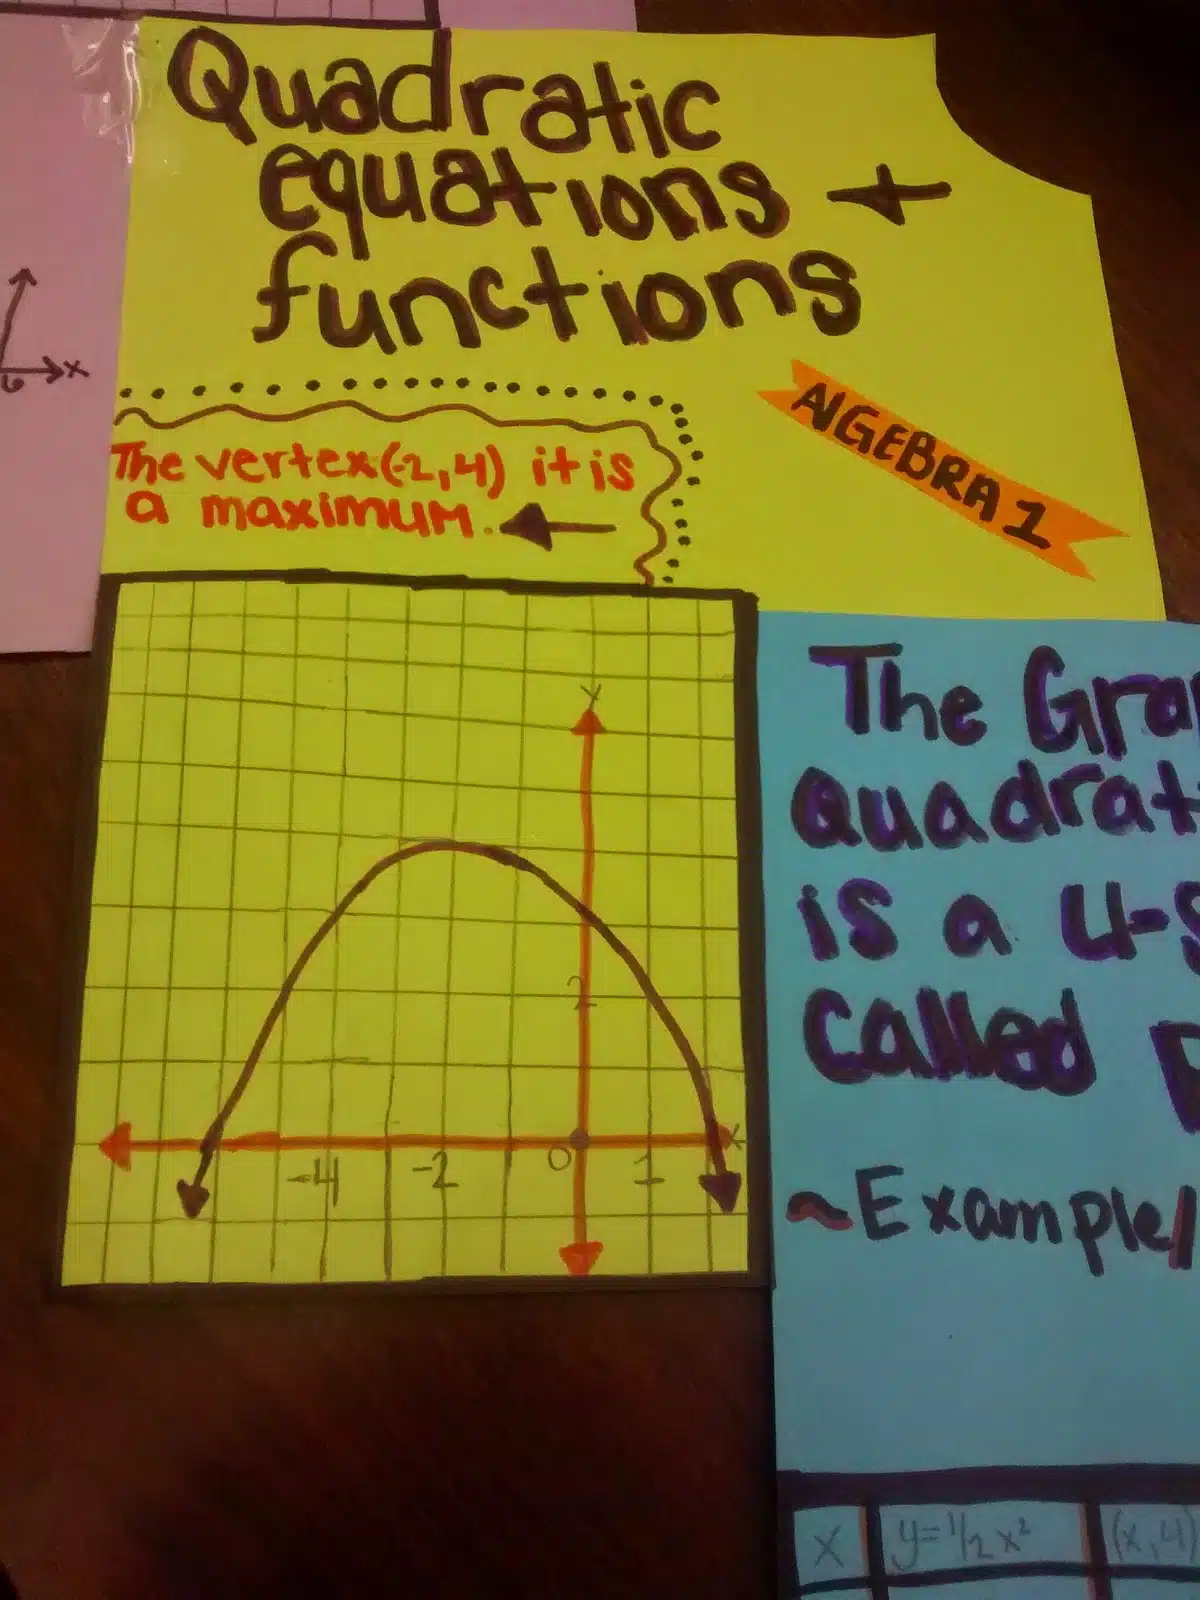 Quadratic
equations +
functions
ALGEBRA 1
The vertex (-2,4) it is
a maximum.
Y
2
X
-4 -2 0 1
x
The Gra
Quadrat
is a U-S
Called
~Example
x y=1/2x² (x,y)